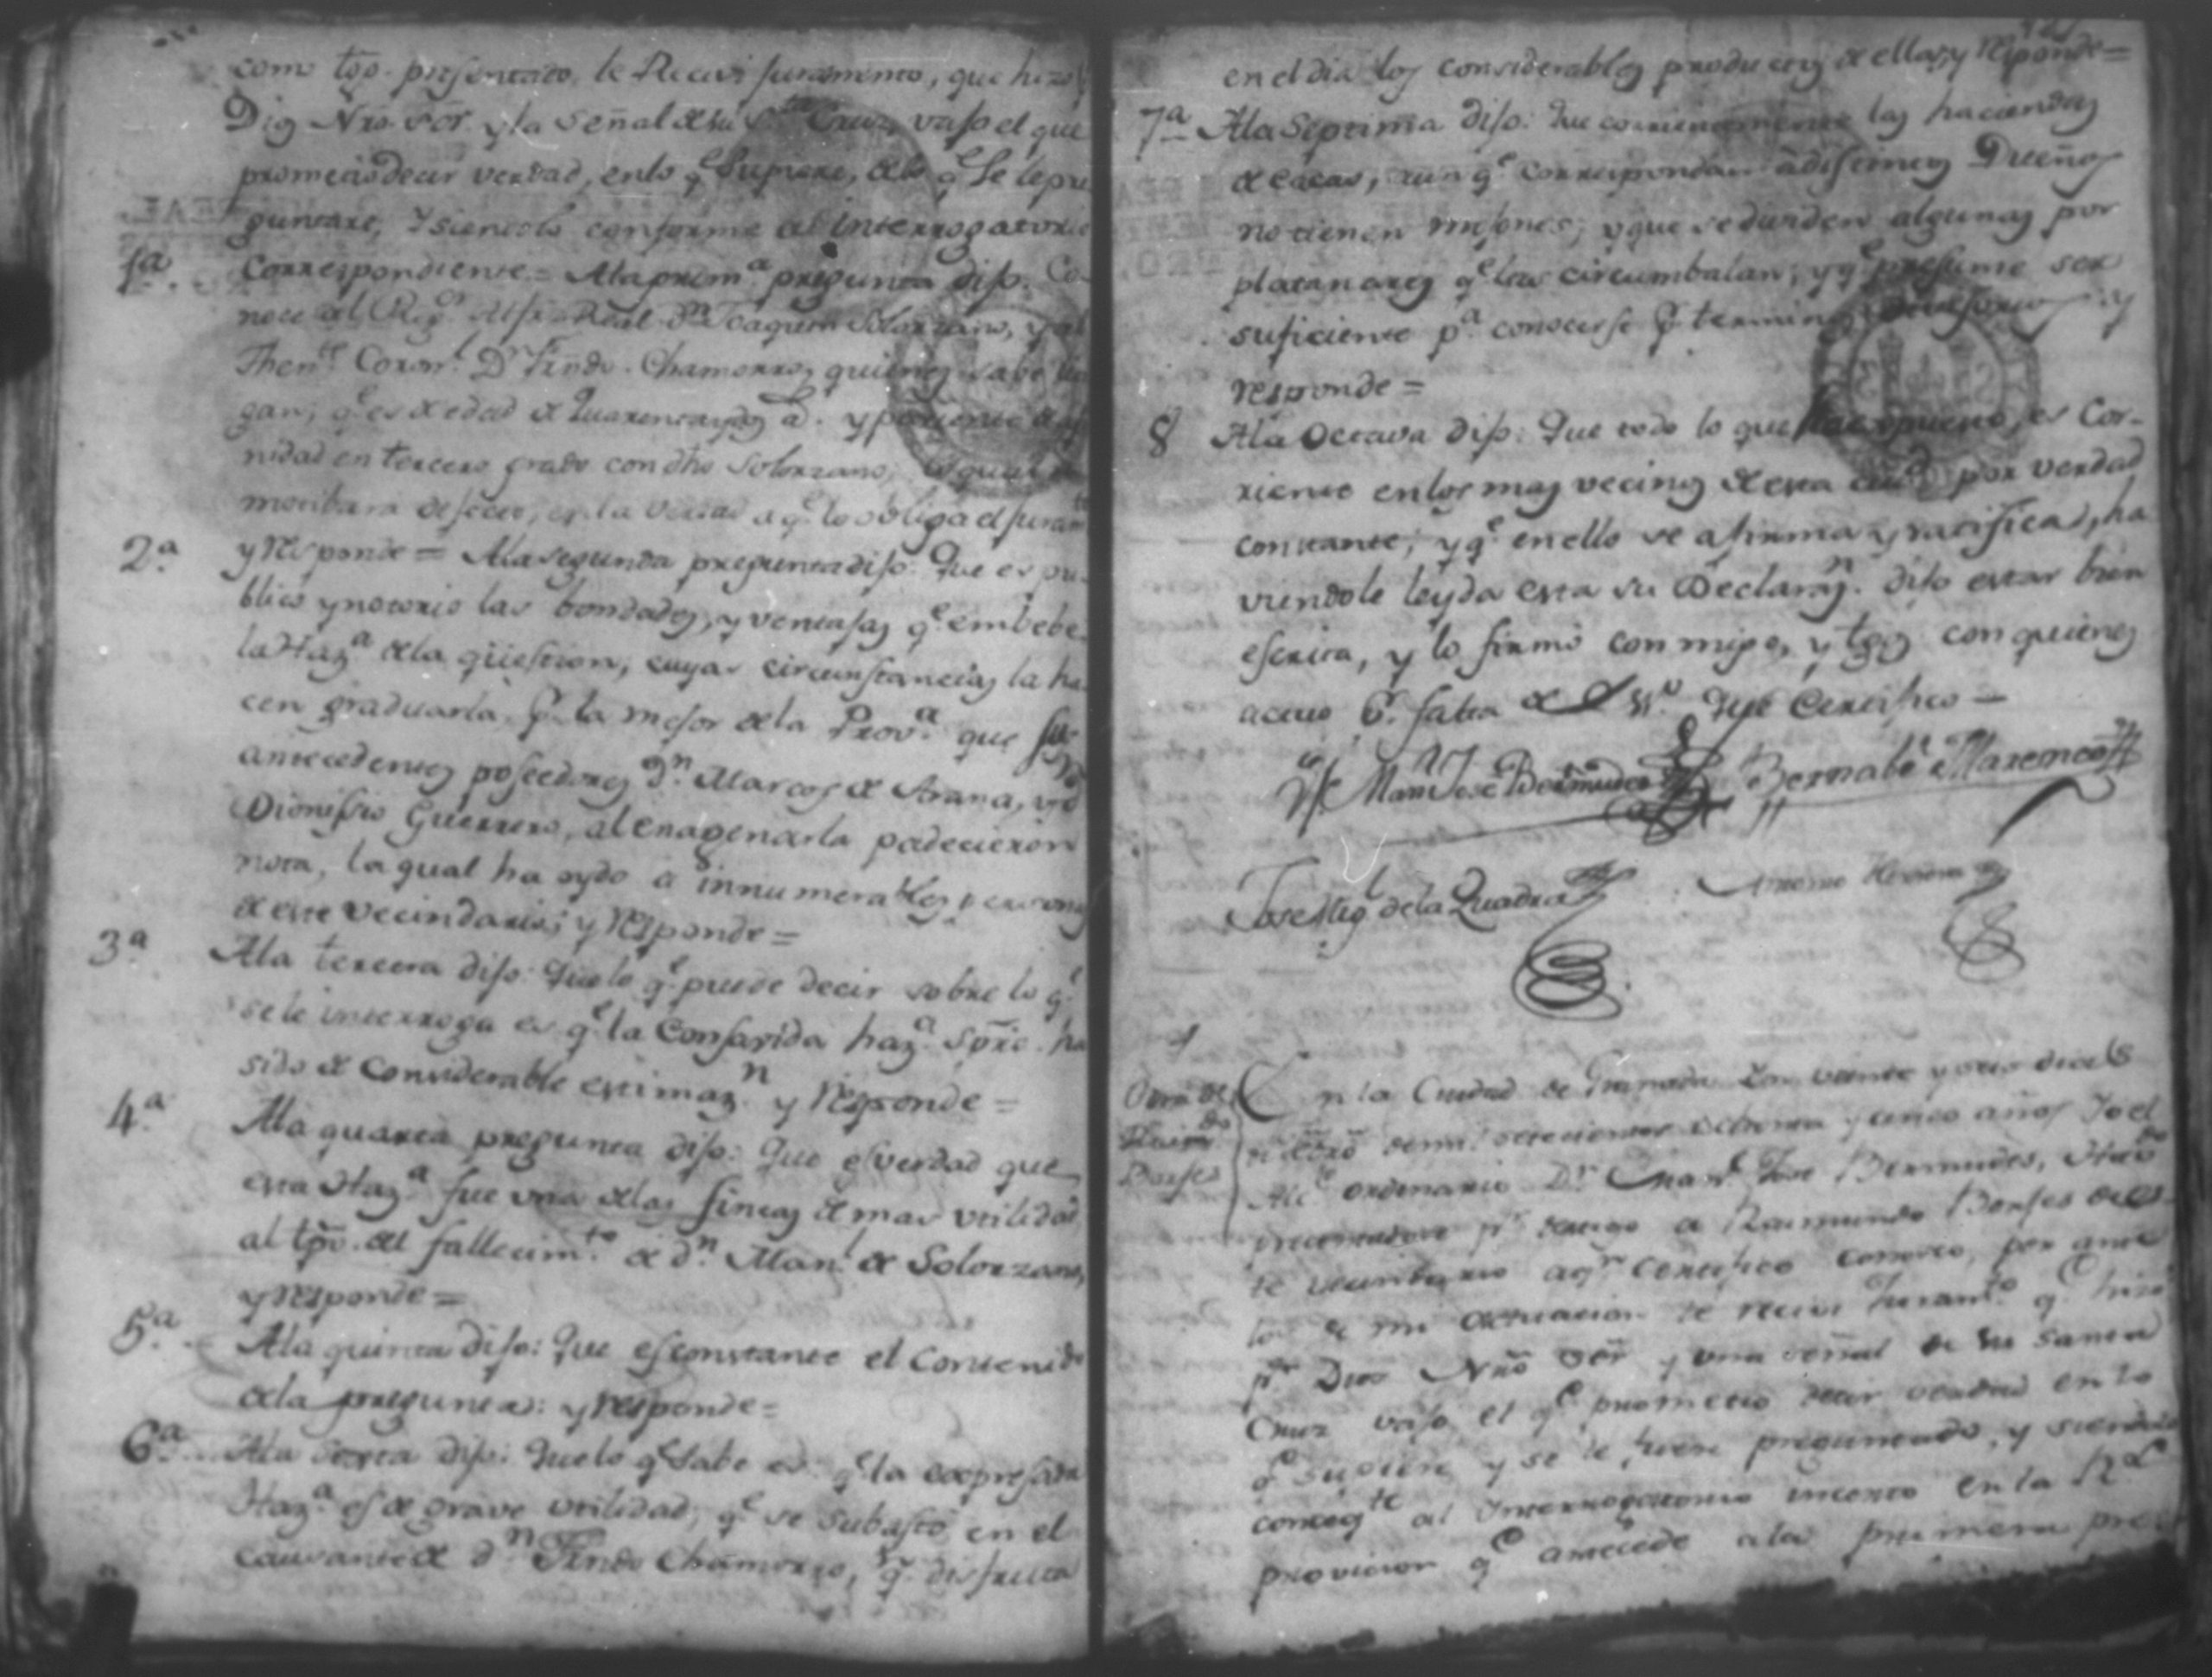 como tgo. presentado le Recivi Juramento, que hizo p.
Dios Nro. Sor. y la Señal de su Sta. Cruz, vajo el que
prometio decir verdad, en lo q.e Supiere, de lo q.e Se le pre
guntare, y siendolo conforme al interrogatorio
1.a Correspondiente = A la prim.a pregunta dijo. Co-
noce al Alfz. Real D.n Joaquin Solorzano, y al
Then.te Coron.l D.n Frndo. Chamorro, quienes sabe li-
gan; q.e es de edad de Quarenta y dos a.s y
nidad en tercero grado con dho Solorzano,
la verdad a q.e lo obliga el juram.to
2.a y responde = A la segunda pregunta dijo: Que es pu-
blico y notorio las bondades, y ventajas q.e embebe
la Haz.a de la qüestion, cuyas circunstancias la ha-
cen graduarla p.r la mejor de la Prov.a que sus
antecedentes poseedores D.n Marcos de Arana, y D.n
Dionisio Guerrero, al enagenarla padecieron
nota, la qual ha oydo a innumerables personas
de este vecindario; y responde =
3.a A la tercera dijo: Que lo q.e puede decir sobre lo q.e
se le interroga es q.e la Consavida haz.a Spre. ha
sido de Considerable estimaz.n y responde =
4.a A la quarta pregunta dijo: Que es verdad que
esta Haz.a fue una de las fincas de mas utilidad
al tpo. del fallecim.to de d.n Man.l de Solorzano,
y responde =
5.a A la quinta dijo: Que es constante el Contenido
de la pregunta: y responde =
6.a A la sexta dijo: Que lo q.e Sabe es q.e la expresada
Haz.a es de grave utilidad, q.e se subastó en el
causante de d.n Frndo Chamorro, q.n disfruta
en el dia los considerables productos de ellas, y responde =
7.a A la Septima dijo: Que corrientemente las haciendas
de Cacao, aun q.e correspondan a distintos Dueños
no tienen mojones; y que se dividen algunas por
platanares q.e las circumbalan; y q.e presume ser
suficiente p.a conocerse p.r terminos divisorios y
responde =
8 A la Octava dijo: Que todo lo que lleva expuesto, es Cor-
riente en los mas vecinos de esta ciu.d por verdad
constante; y q.e en ello se afirma y ratifica, ha
viendole leyda esta su Declaraz.n dijo estar bien
escrita, y lo firmó conmigo, y tgos con quienes
actuo p.r falta de Ss.no que Certifico =
Man.l Jose Bermudez Bernabé Marenco
Jose Mig.l de la Quadra Antonio Herrera
Otra de Raim.do Borjes
En la Ciudad de Granada en veinte y ocho dias
de mil setecientos ochenta y cinco años Yo el
Alc.e ordinario D.n Man.l Jose Bermudes, Haviendo
presentadose p.r testigo a Raimundo Borjes de es-
te vecindario a q.n Certifico Conosco, por ante
los de mi actuacion le recivi Juram.to q.e hizo
p.r Dios Nro Sor y una señal de su Santa
Cruz vajo el q.e prometio decir verdad en lo
q.e supiere y se le fuere preguntado, y siendolo
conseq.te al Interrogatorio inserto en la R.l
provicion q.e antecede a la primera pre